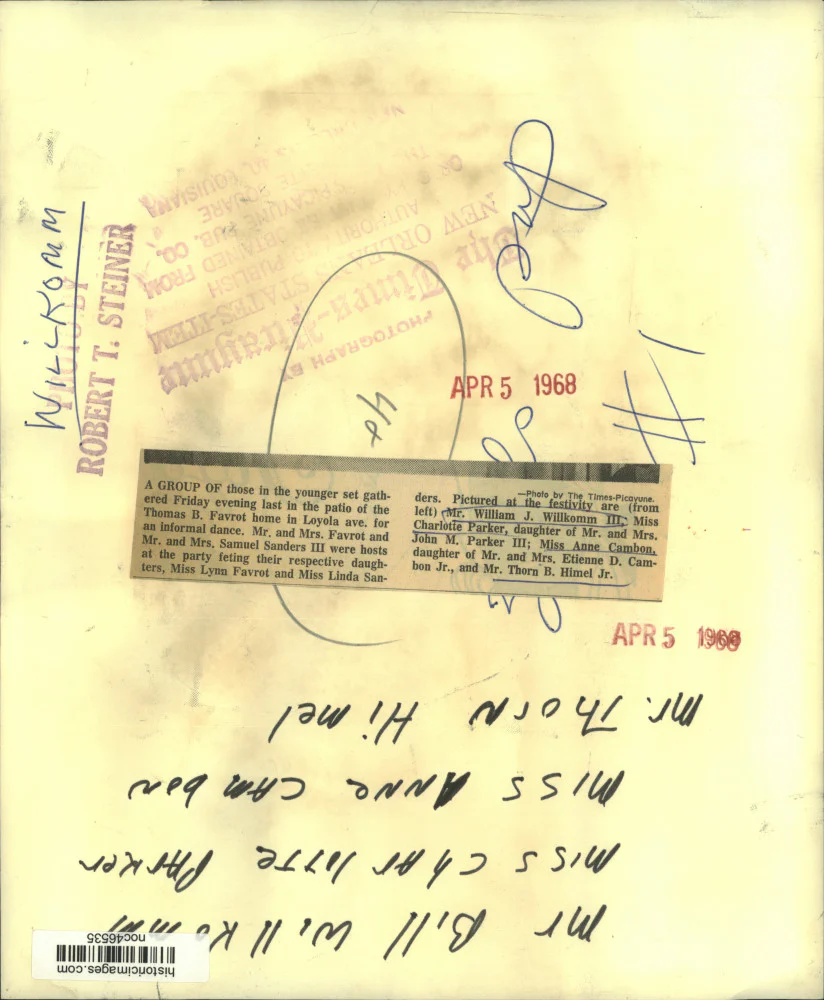 WILLKOMM
PHOTO BY
ROBERT T. STEINER
The Times-Picayune
NEW ORLEANS STATES-ITEM
PHOTOGRAPH BY
APR 5 1968
#1
A GROUP OF those in the younger set gath-
ered Friday evening last in the patio of the
Thomas B. Favrot home in Loyola ave. for
an informal dance. Mr. and Mrs. Favrot and
Mr. and Mrs. Samuel Sanders III were hosts
at the party feting their respective daugh-
ters, Miss Lynn Favrot and Miss Linda San-
—Photo by The Times-Picayune.
ders. Pictured at the festivity are (from
left) Mr. William J. Willkomm III, Miss
Charlotte Parker, daughter of Mr. and Mrs.
John M. Parker III; Miss Anne Cambon,
daughter of Mr. and Mrs. Etienne D. Cam-
bon Jr., and Mr. Thorn B. Himel Jr.
APR 5 1968
Mr Bill Willkomm
MISS CharlOTTE PArker
MISS ANNe CAMBON
Mr. Thorn Himel
historicimages.com
noc46535